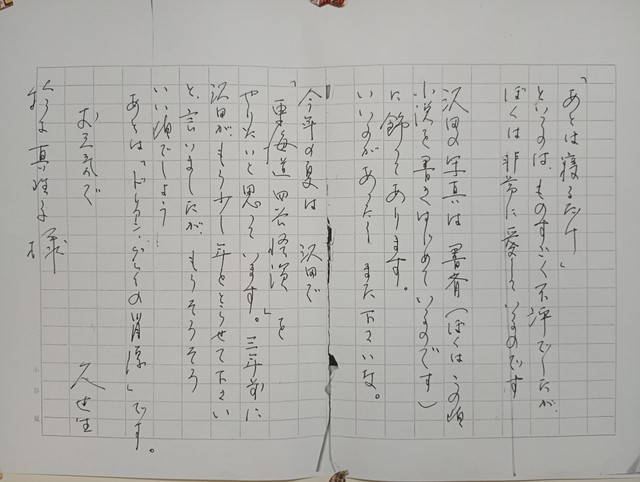 「あとは寝るだけ」
というのは、ものすごく不評でしたが、
ぼくは非常に愛しているのです
沢田の写真は 書斎(ぼくはこの頃
小説を書きはじめているのです)
に飾ってあります。
いいのがあったら また下さいな。
今年の夏は 沢田で
「東海道四谷怪談」を
やりたいと思っています。三年前に
沢田がもう少し年をとらせて下さい
と、言いましたが、もうそろそろ
いい頃でしょう
あとは「ドリアン・グレイの肖像」です。
お元気で
久世生
真理子様